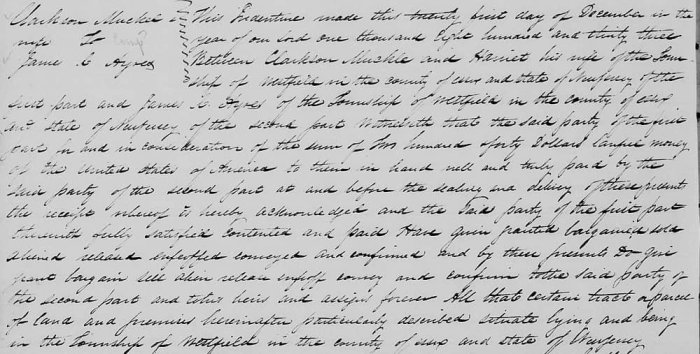 Clarkson Muckle &
wife To
James C Ayres
This Indentine made this twenty first day of December in the
year of our lord one thousand eight hundred and thirty three
Between Clarkson Muckle and Harriet his wife of the Town
ship of Westfield in the county of essex and state of Newjersey of the
first part and James C Ayres of the Township of Westfield in the county of essex
and state of Newjersey of the second part Witnesseth that the said party of the first
part for and in consideration of the sum of Two hundred & forty Dollars lawful money
of the United states of America to them in hand well and truly paid by the
said party of the second part at and before the sealing and delivery of these presents
the receipt whereof is hereby acknowledged and the said party of the first part
therewith fully satisfied contented and paid Have given granted bargained sold
aliened released enfeoffed conveyed and confirmed and by these presents Do give
grant bargain sell alien release enfeoff convey and confirm to the said party of
the second part and to his heirs and assigns forever All that certain tract or parcel
of land and premises hereinafter particularly described situate lying and being
in the Township of Westfield in the county of essex and state of Newjersey